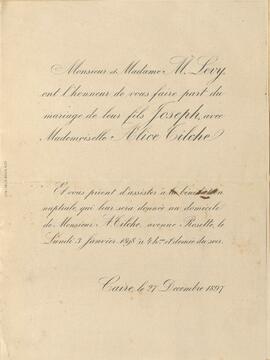 Monsieur & Madame M. Levy
ont l'honneur de vous faire part du
mariage de leur fils Joseph, avec
Mademoiselle Alice Tilche
Et vous prient d'assister à la bénédiction
nuptiale, qui leur sera donnée au domicile
de Monsieur A. Tilche, avenue Rosette, le
Lundi 3 Janvier 1898 à 4 h.res et demie du soir.
Caire, le 27 Decembre 1897